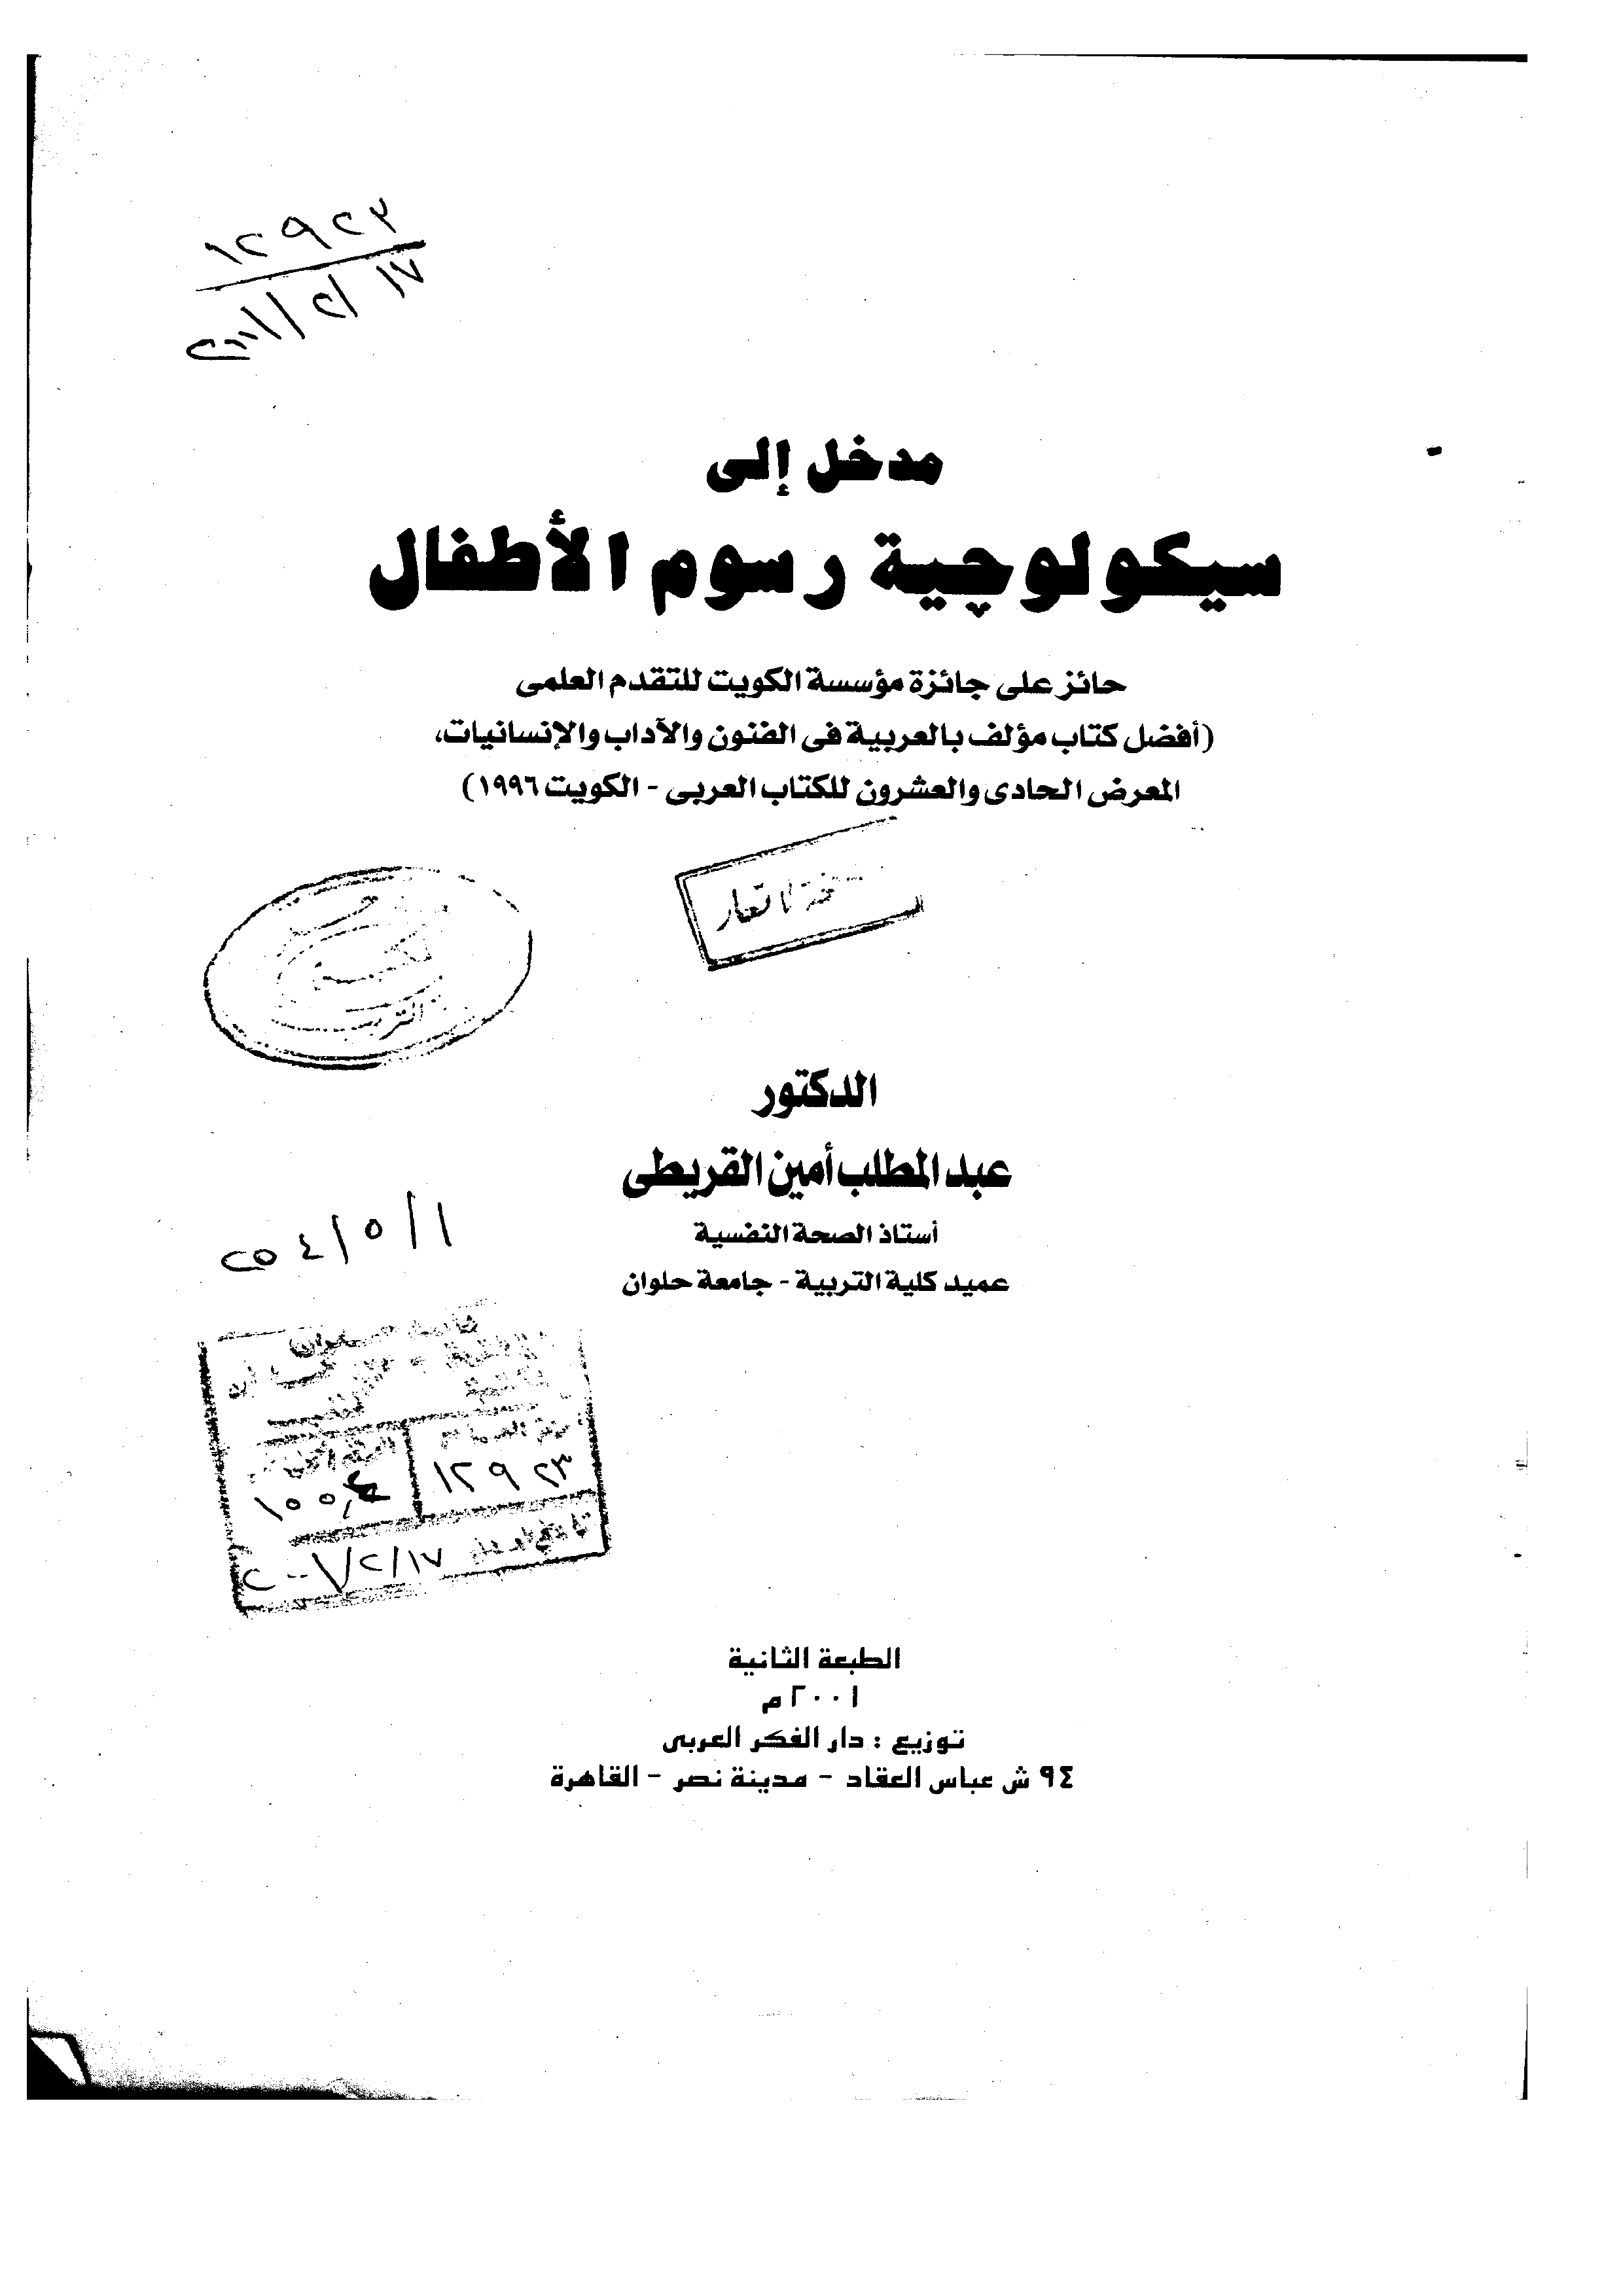 ١٢٩٢٣
٢٠٠١/٢/١٧
مدخل إلى
سيكولوچية رسوم الأطفال
حائز على جائزة مؤسسة الكويت للتقدم العلمى
(أفضل كتاب مؤلف بالعربية فى الفنون والآداب والإنسانيات،
المعرض الحادى والعشرون للكتاب العربى - الكويت ١٩٩٦)
لا تعار
الدكتور
عبد المطلب أمين القريطى
أستاذ الصحة النفسية
عميد كلية التربية - جامعة حلوان
١٢٩٢٣
٢٠٠١/٢/١٧
الطبعة الثانية
٢٠٠١ م
توزيع : دار الفكر العربى
٩٤ ش عباس العقاد - مدينة نصر - القاهرة